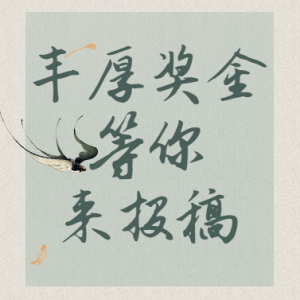 丰厚奖金
等你
来投稿